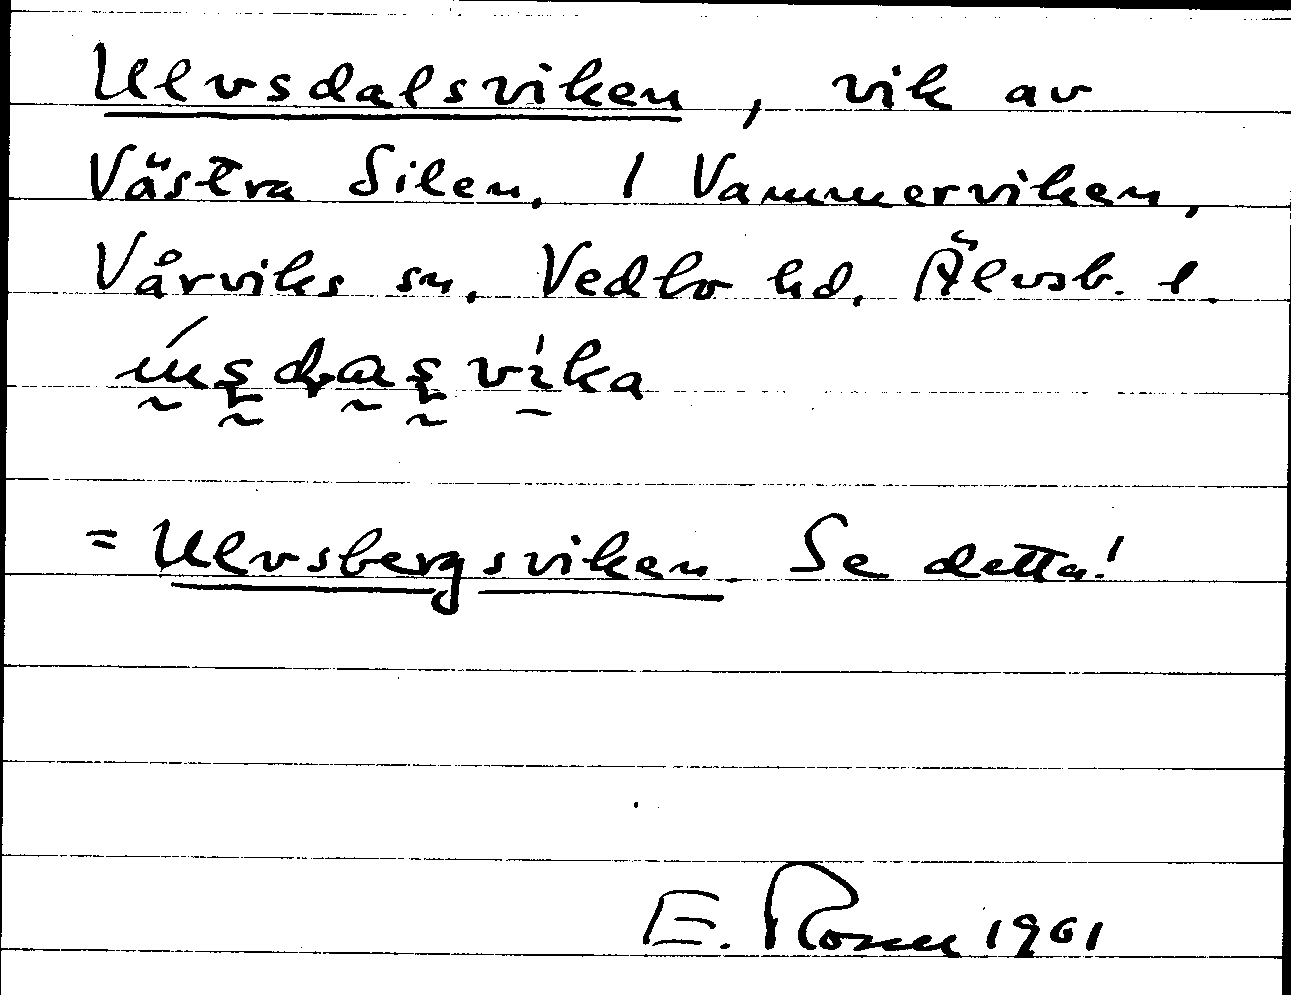 Ulvsdalsviken, vik av
Västra Silen. I Vammerviken,
Vårviks sn. Vedbo hd. Älvsb. l.
vika
= Ulvsbergsviken. Se detta!
E. Rosen 1961